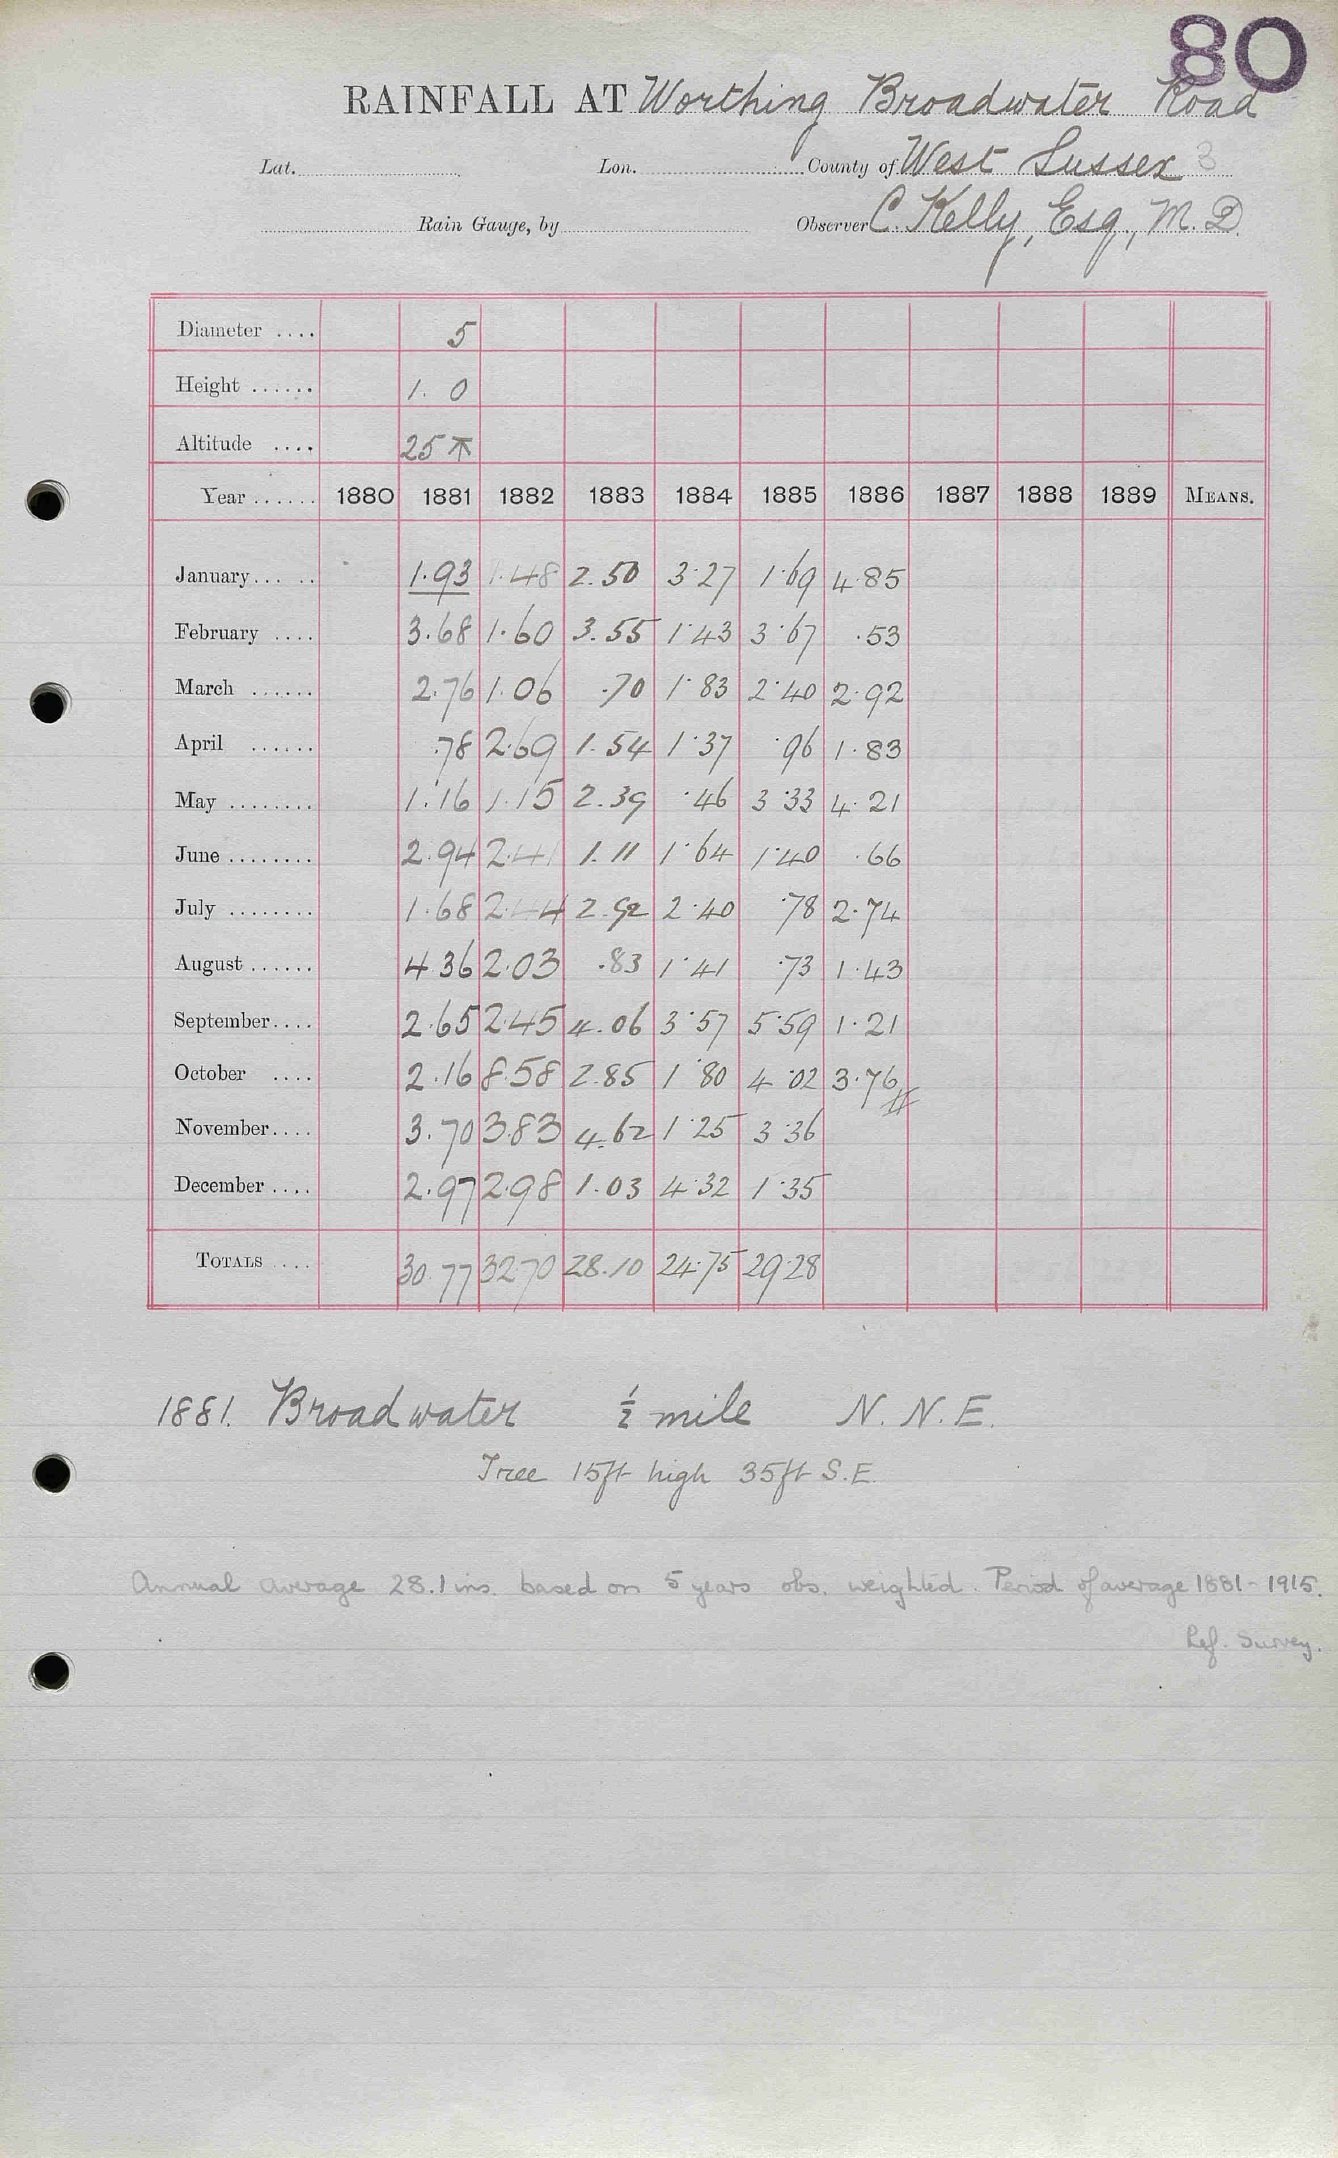 80
RAINFALL AT Worthing Broadwater Road
Lat. Lon. County of West Sussex 3
Rain Gauge, by Observer C. Kelly, Esq., M.D.
Diameter .... 5
Height ...... 1. 0
Altitude .... 25
Year ...... 1880 1881 1882 1883 1884 1885 1886 1887 1888 1889 MEANS.
January... .. 1.93 1.48 2.50 3.27 1.69 4.85
February .... 3.68 1.60 3.55 1.43 3.67 .53
March ...... 2.76 1.06 .70 1.83 2.40 2.92
April ...... .78 2.69 1.54 1.37 .96 1.83
May ........ 1.16 1.15 2.39 .46 3.33 4.21
June ........ 2.94 2.41 1.11 1.64 1.40 .66
July ........ 1.68 2.44 2.92 2.40 .78 2.74
August ...... 4.36 2.03 .83 1.41 .73 1.43
September.... 2.65 2.45 4.06 3.57 5.59 1.21
October .... 2.16 8.58 2.85 1.80 4.02 3.76
November.... 3.70 3.83 4.62 1.25 3.36
December .... 2.97 2.98 1.03 4.32 1.35
TOTALS .... 30.77 32.70 28.10 24.75 29.28
1881. Broadwater ½ mile N.N.E.
Tree 15ft high 35ft S.E.
Annual average 28.1 ins. based on 5 years obs. weighted. Period of average 1881-1915.
Ref. Survey.